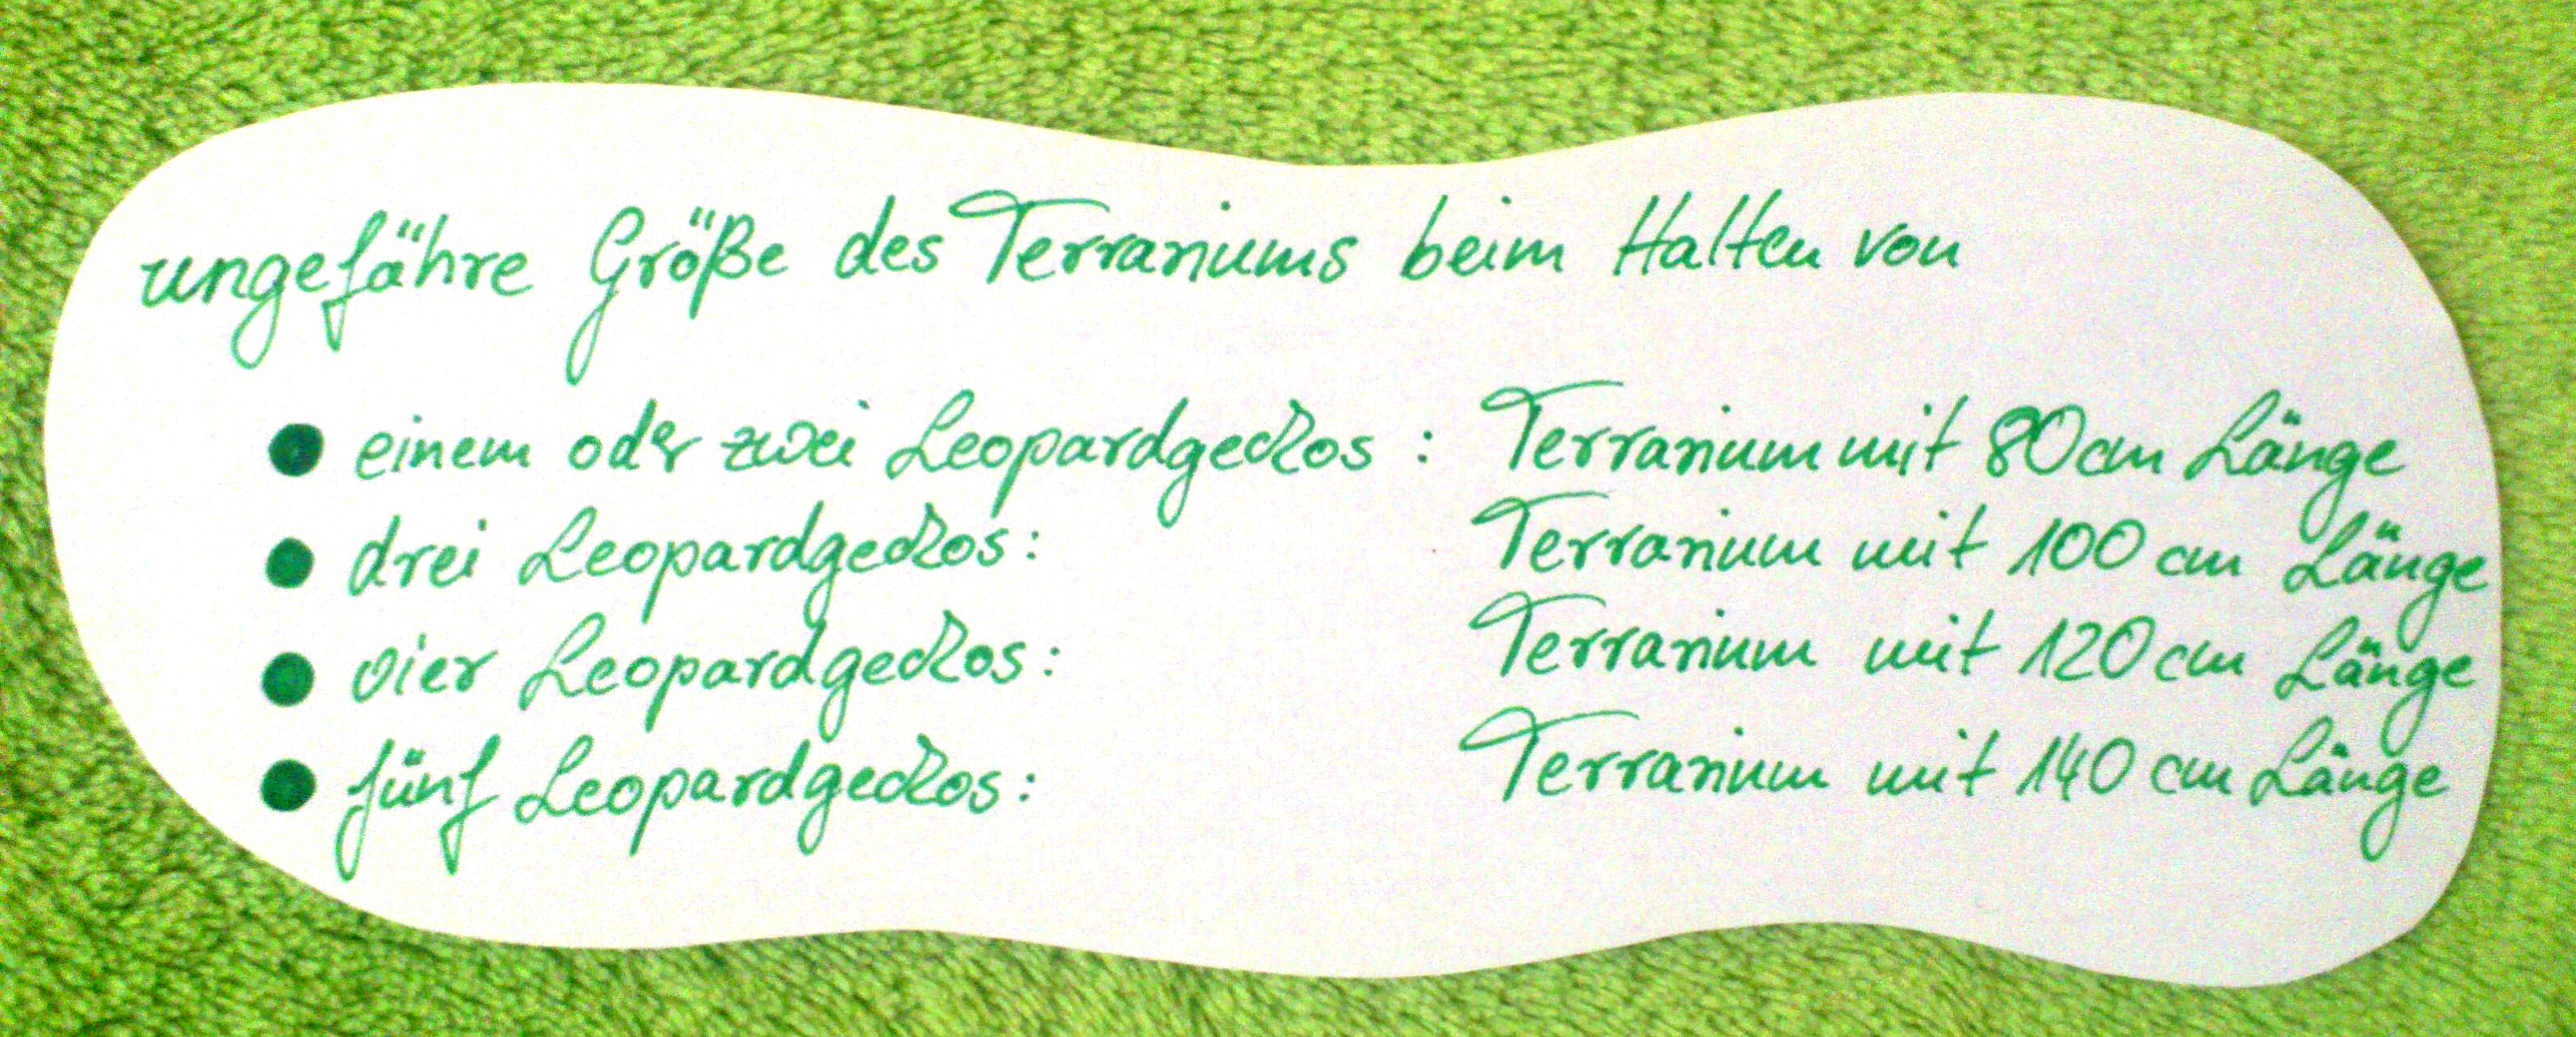 ungefähre Größe des Terrariums beim Halten von
● einem oder zwei Leopardgeckos: Terrarium mit 80 cm Länge
● drei Leopardgeckos: Terrarium mit 100 cm Länge
● vier Leopardgeckos: Terrarium mit 120 cm Länge
● fünf Leopardgeckos: Terrarium mit 140 cm Länge